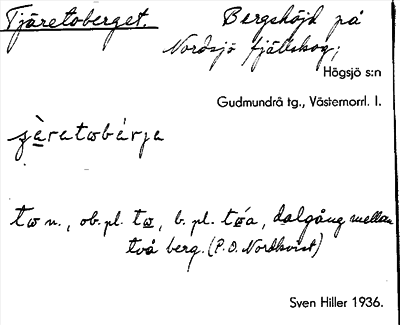 Tjäretoberget. Bergshöjd på
Nordsjö fjällskog;
Högsjö s:n
Gudmundrå tg., Västernorrl. l.
tɷ n., ob. pl. tɷ, b. pl. tɷ́a, dalgång mellan
två berg. (P. O. Nordkvist)
Sven Hiller 1936.